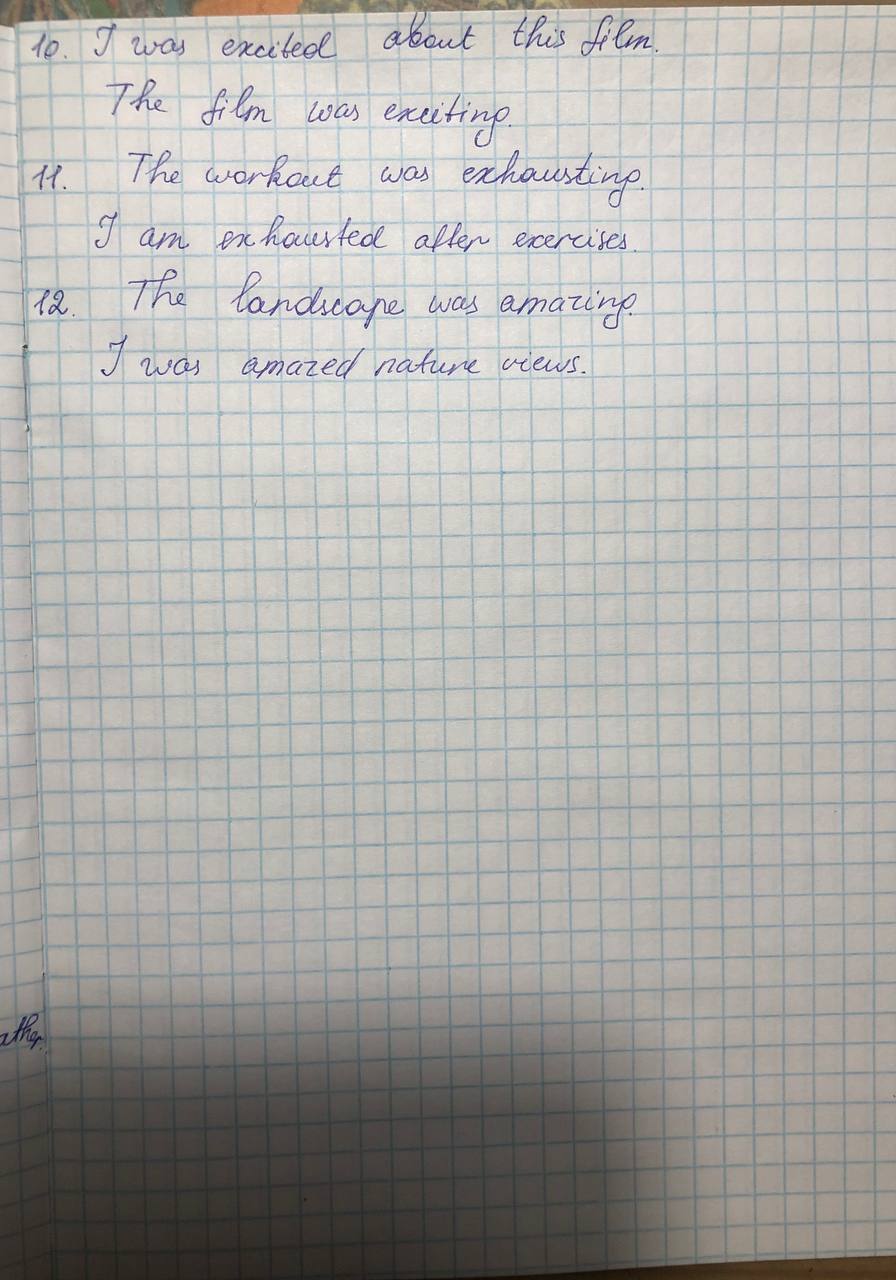 10. I was excited about this film.
The film was exciting.
11. The workout was exhausting.
I am exhausted after exercises.
12. The landscape was amazing.
I was amazed nature views.